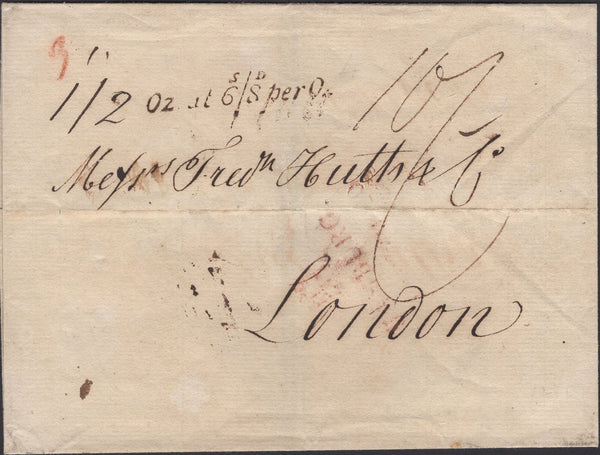 1 1/2 Oz at 6S/8D per Oz 10/
Messrs Fredk Huth & Co
London